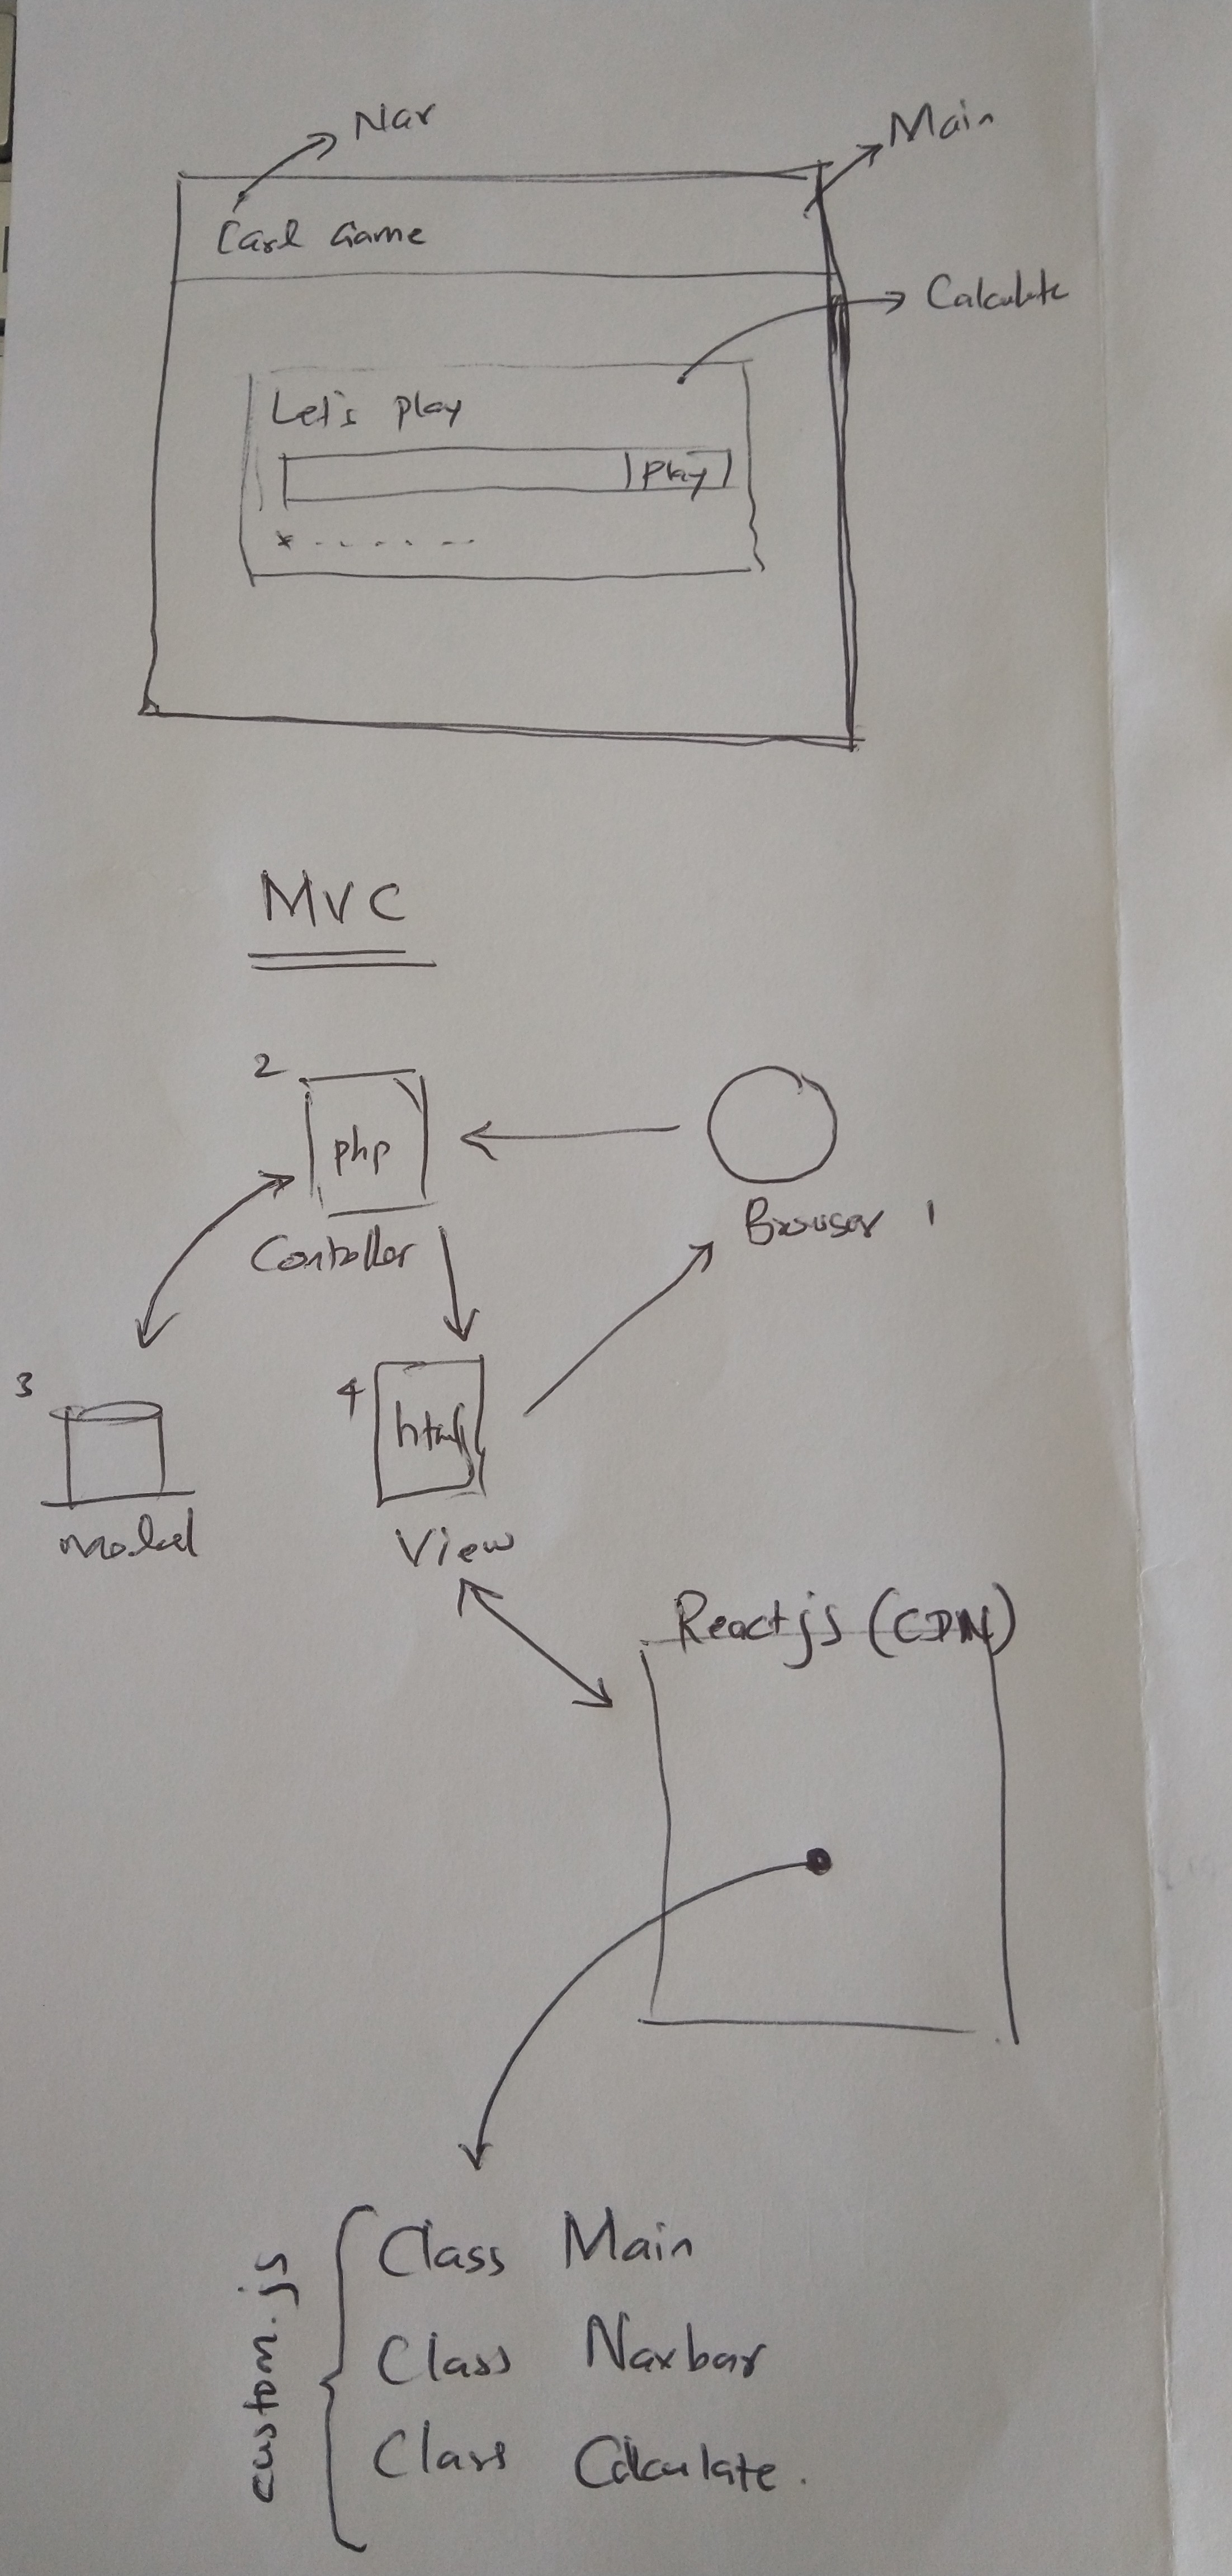 Nav
Main
Card Game
Calculate
Let's play
Play
* - - - - - -
MVC
2
php
Controller
Browser 1
3
model
4
html
View
Reactjs (CDN)
custom.js
Class Main
Class Navbar
Class Calculate.